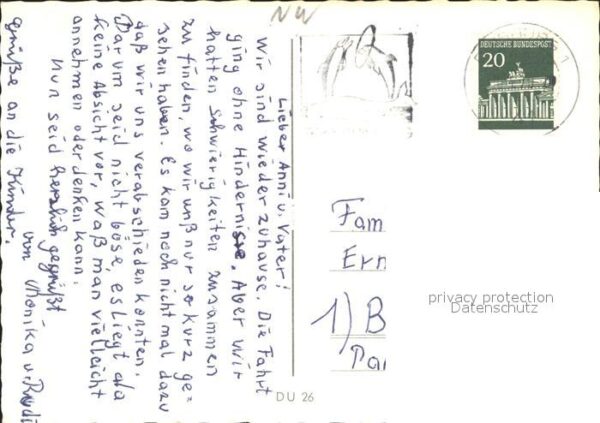 Lieber Anni u. Vater!
Wir sind wieder zuhause. Die Fahrt
ging ohne Hindernisse. Aber wir
hatten Schwierigkeiten zusammen
zu finden, wo wir unß nur so kurz ge=
sehen haben. Es kam noch nicht mal dazu
daß wir uns verabschieden konnten.
Darum seid nicht böse, es liegt da
keine Absicht vor, waß man vielleicht
annehmen oder denken kann.
Nun seid herzlich gegrüßt
von Monika u. Rudi
grüße an die Kinder.
NW
DEUTSCHE BUNDESPOST
20
Fam
Ern
1) B
Par
privacy protection
Datenschutz
DU 26